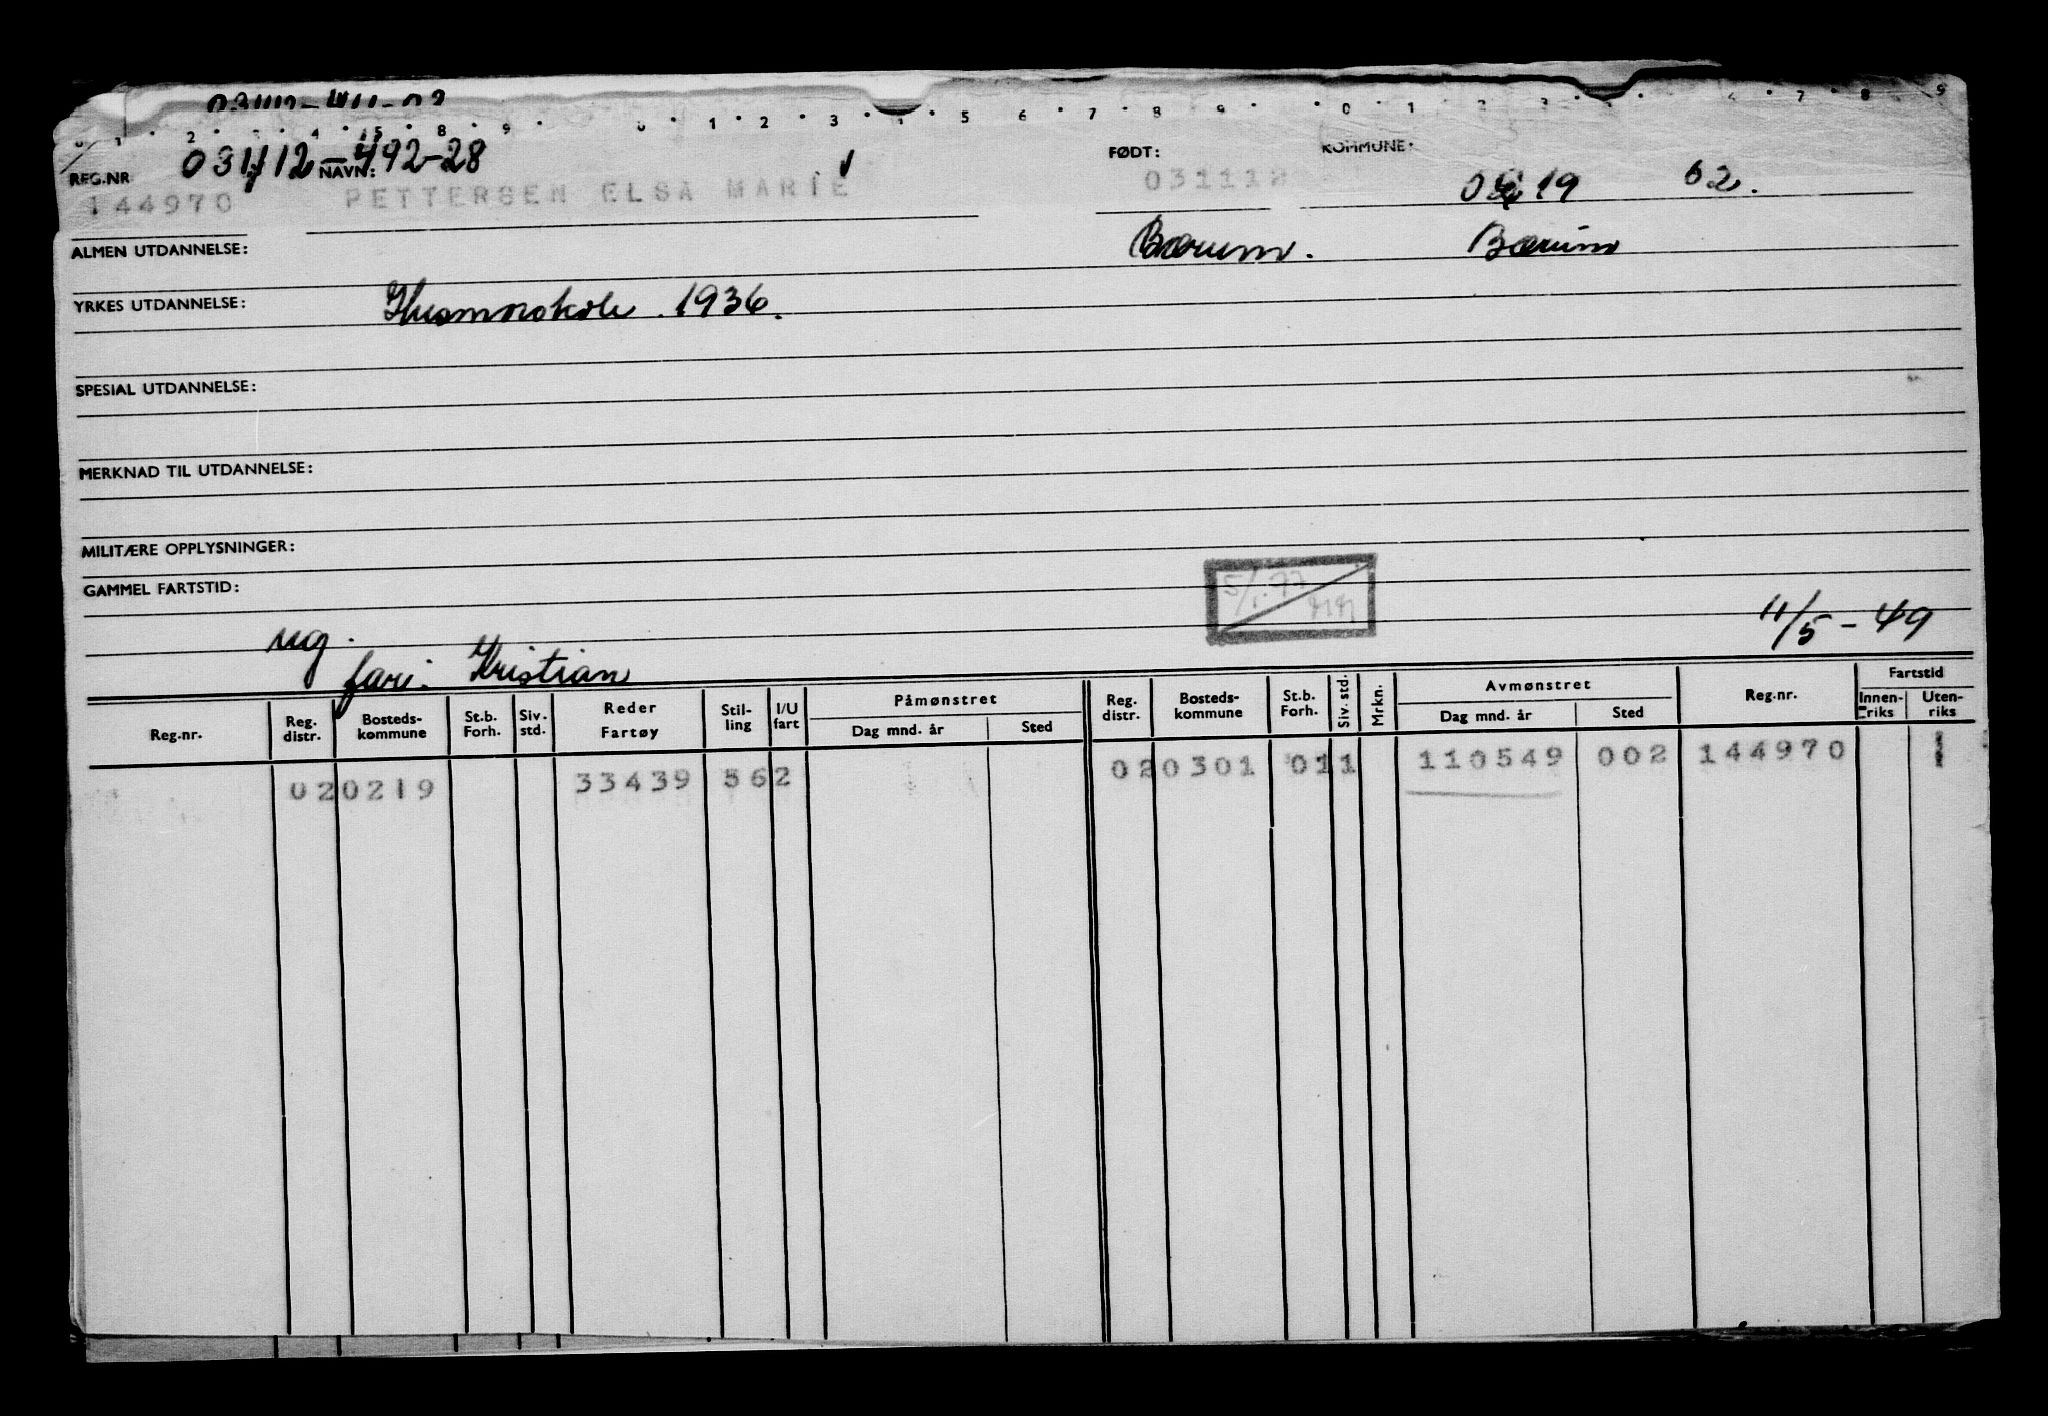 031112-492-28
REG.NR
NAVN:
FØDT:
KOMMUNE:
144970 PETTERSEN ELSA MARIE 031112 0219 62.
ALMEN UTDANNELSE:
Bærum. Bærum
YRKES UTDANNELSE:
Husmorskole. 1936.
SPESIAL UTDANNELSE:
MERKNAD TIL UTDANNELSE:
MILITÆRE OPPLYSNINGER:
GAMMEL FARTSTID:
5/1.77
ug.
11/5-49
far: Kristian
Reg.nr. Reg. distr. Bosteds-kommune St.b. Forh. Siv. std. Reder Fartøy Stil-ling I/U fart Påmønstret Dag mnd. år Sted Reg. distr. Bosteds-kommune St.b. Forh. Siv. std. Mrkn. Avmønstret Dag mnd. år Sted Reg.nr. Fartstid Innen-riks Uten-riks
02 0219 33439 562 02 0301 01 1 110549 002 144970 1